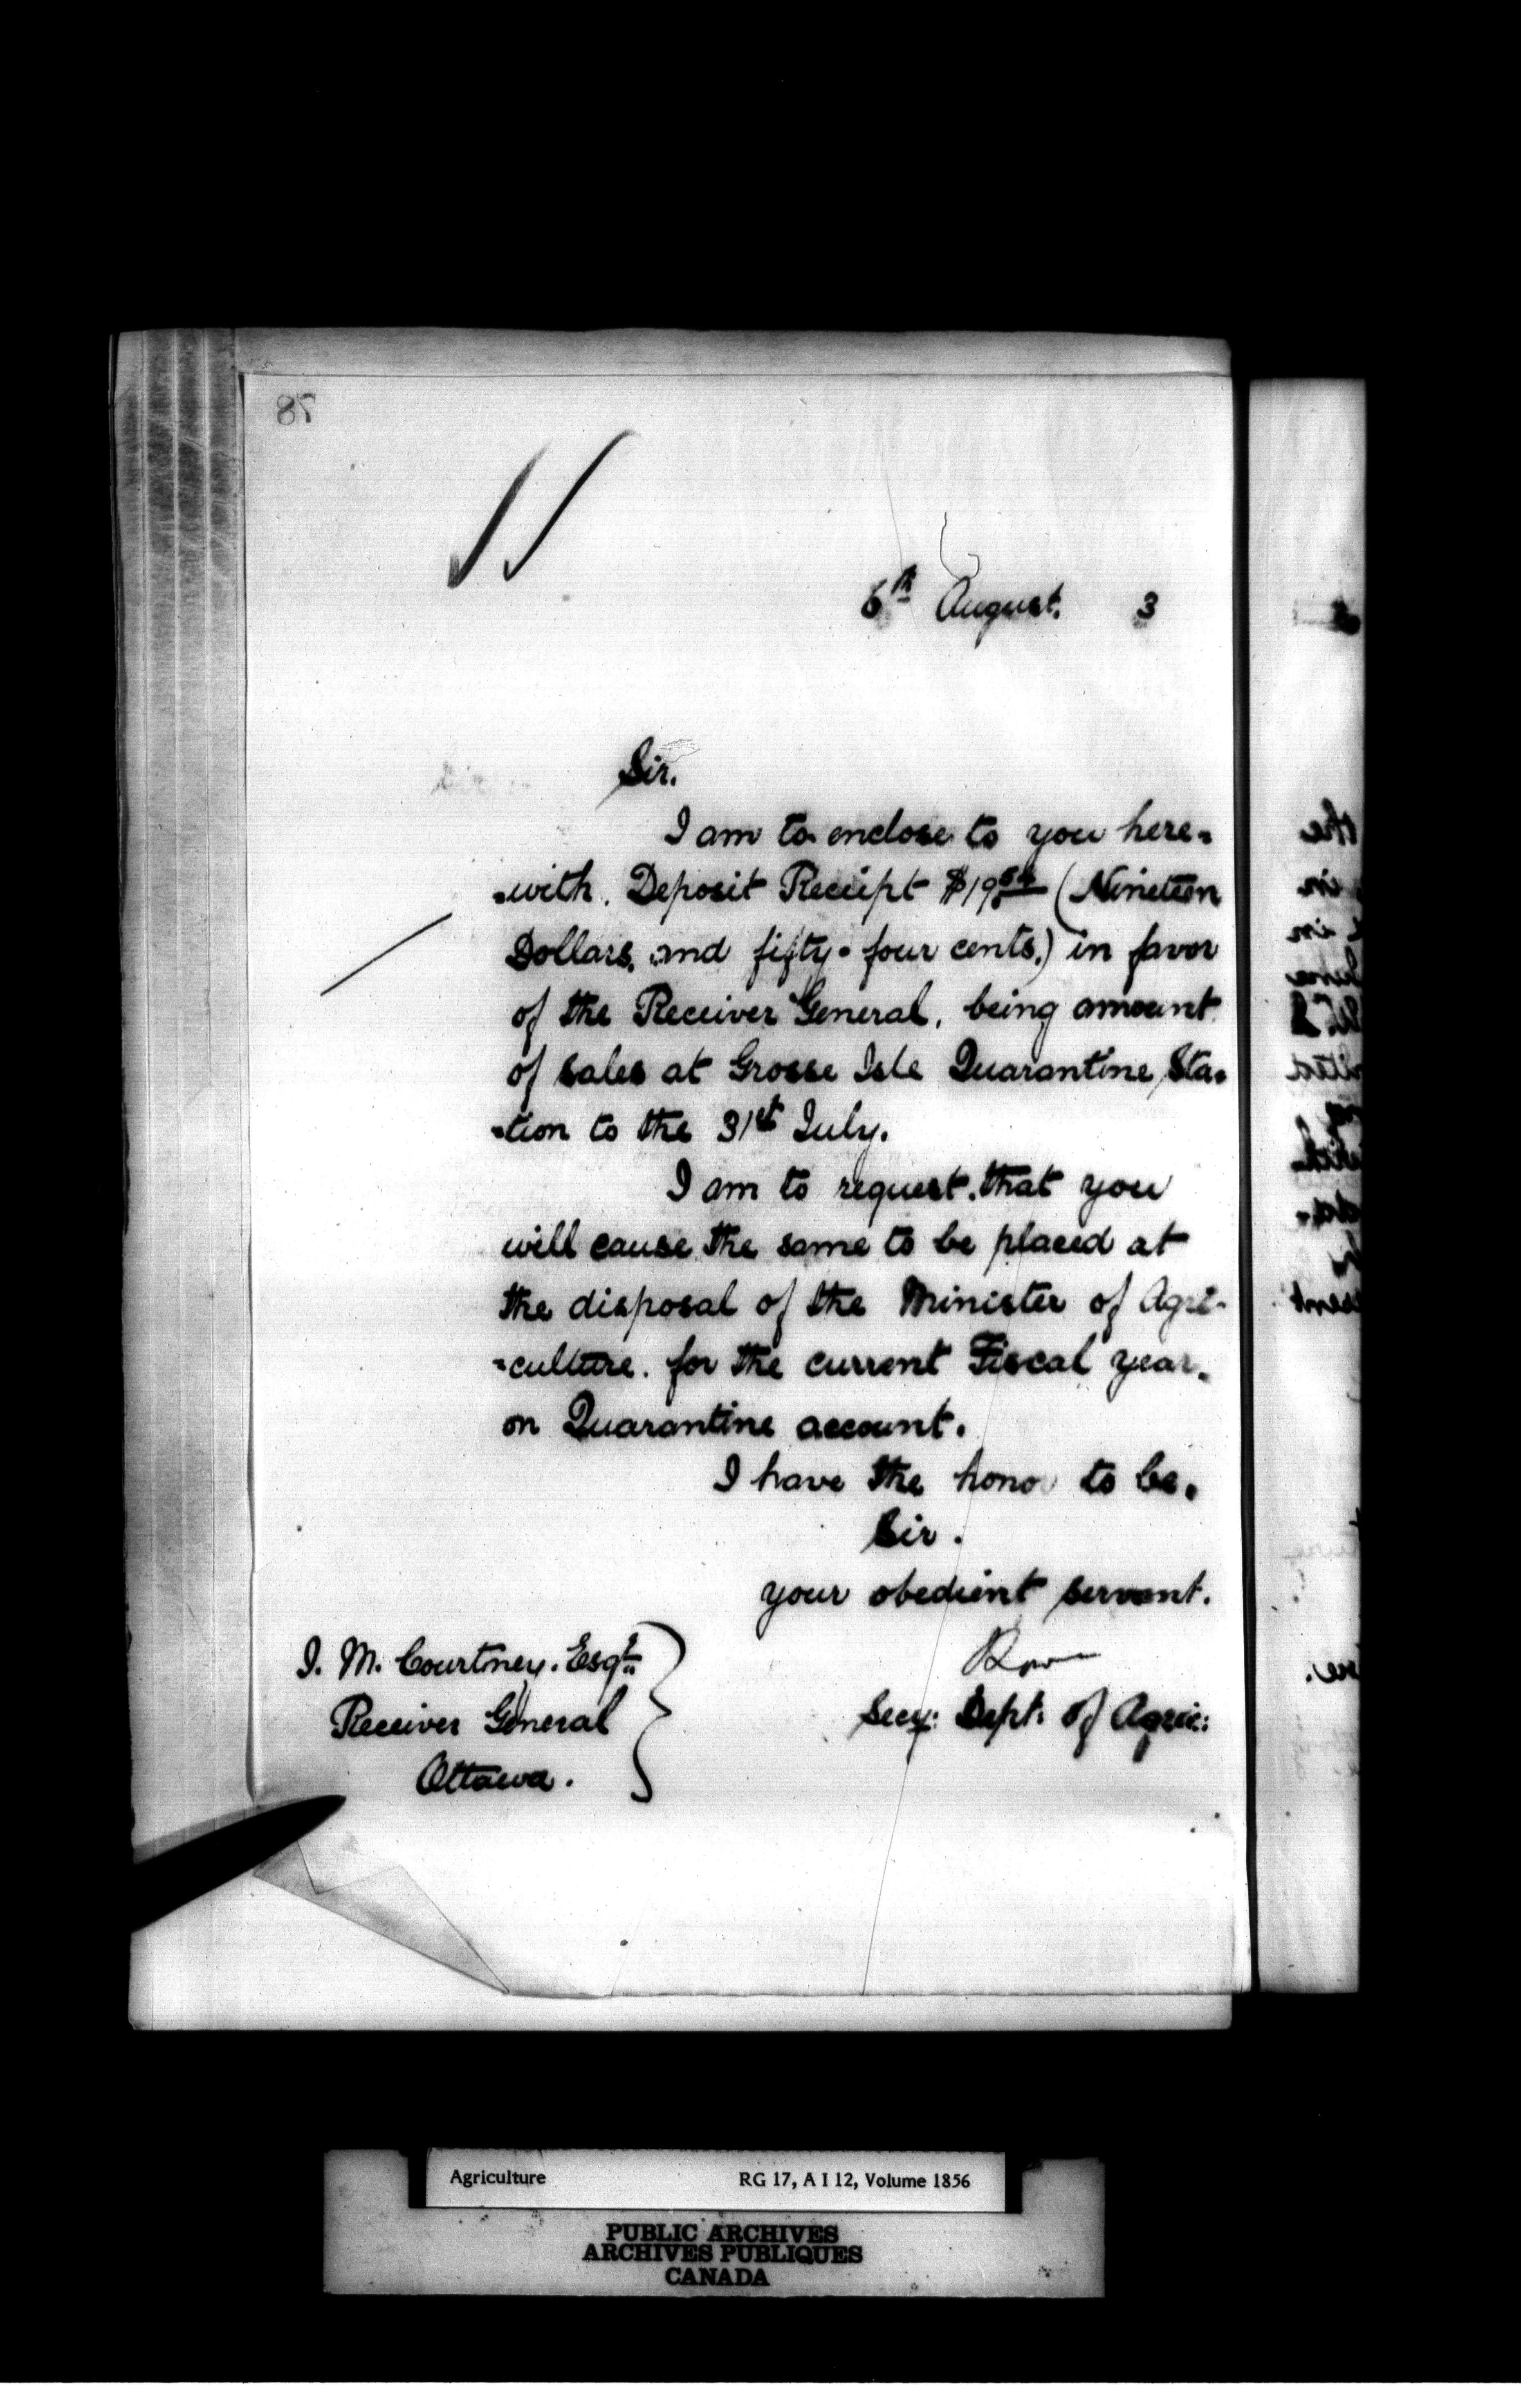 78
6th August. 3
Sir.
I am to enclose to you here=
=with. Deposit Receipt $19 54 (Nineteen
Dollars, and fifty-four cents.) in favor
of the Receiver General, being amount
of sales at Grosse Isle Quarantine Sta=
=tion to the 31st July.
I am to request that you
will cause the same to be placed at
the disposal of the Minister of Agri=
=culture. for the current Fiscal year.
on Quarantine account.
I have the honor to be.
Sir.
your obedient servant.
Secy: Dept: of Agric:
J. M. Courtney. Esqre
Receiver General
Ottawa.
Agriculture RG 17, A I 12, Volume 1856
PUBLIC ARCHIVES
ARCHIVES PUBLIQUES
CANADA